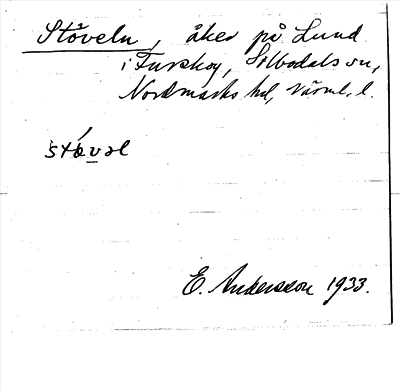 Stöveln, åker på Lund
i Furskog, Silbodals sn,
Nordmarks hd, Värml. l.
støvəl
E. Andersson 1933.